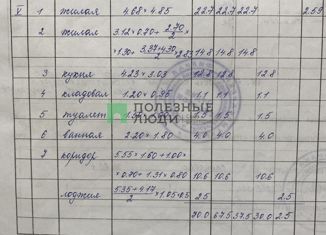 V 1 жилая 4.68 × 4.85 22.7 22.7 22.7 2.59
2 жилая 3.12×0.70+ 2.70/2 ×
×1.30+ 3.37+4.30/2 14.8 14.8 14.8
3 кухня 4.23 × 3.03 12.8 12.8 12.8
4 кладовая 1.20 × 0.95 1.1 1.1 1.1
ПОЛЕЗНЫЕ
ЛЮДИ
5 туалет 1.5 1.5 1.5
6 ванная 2.20 × 1.80 4.0 4.0 4.0
7 коридор 5.55 × 1.60 + 1.00×
×0.70 + 1.31 × 0.80 10.6 10.6 10.6
лоджия 5.35+4.17/2 ×1.05×0.5 2.5 2.5
70.0 67.5 37.5 30.0 2.5